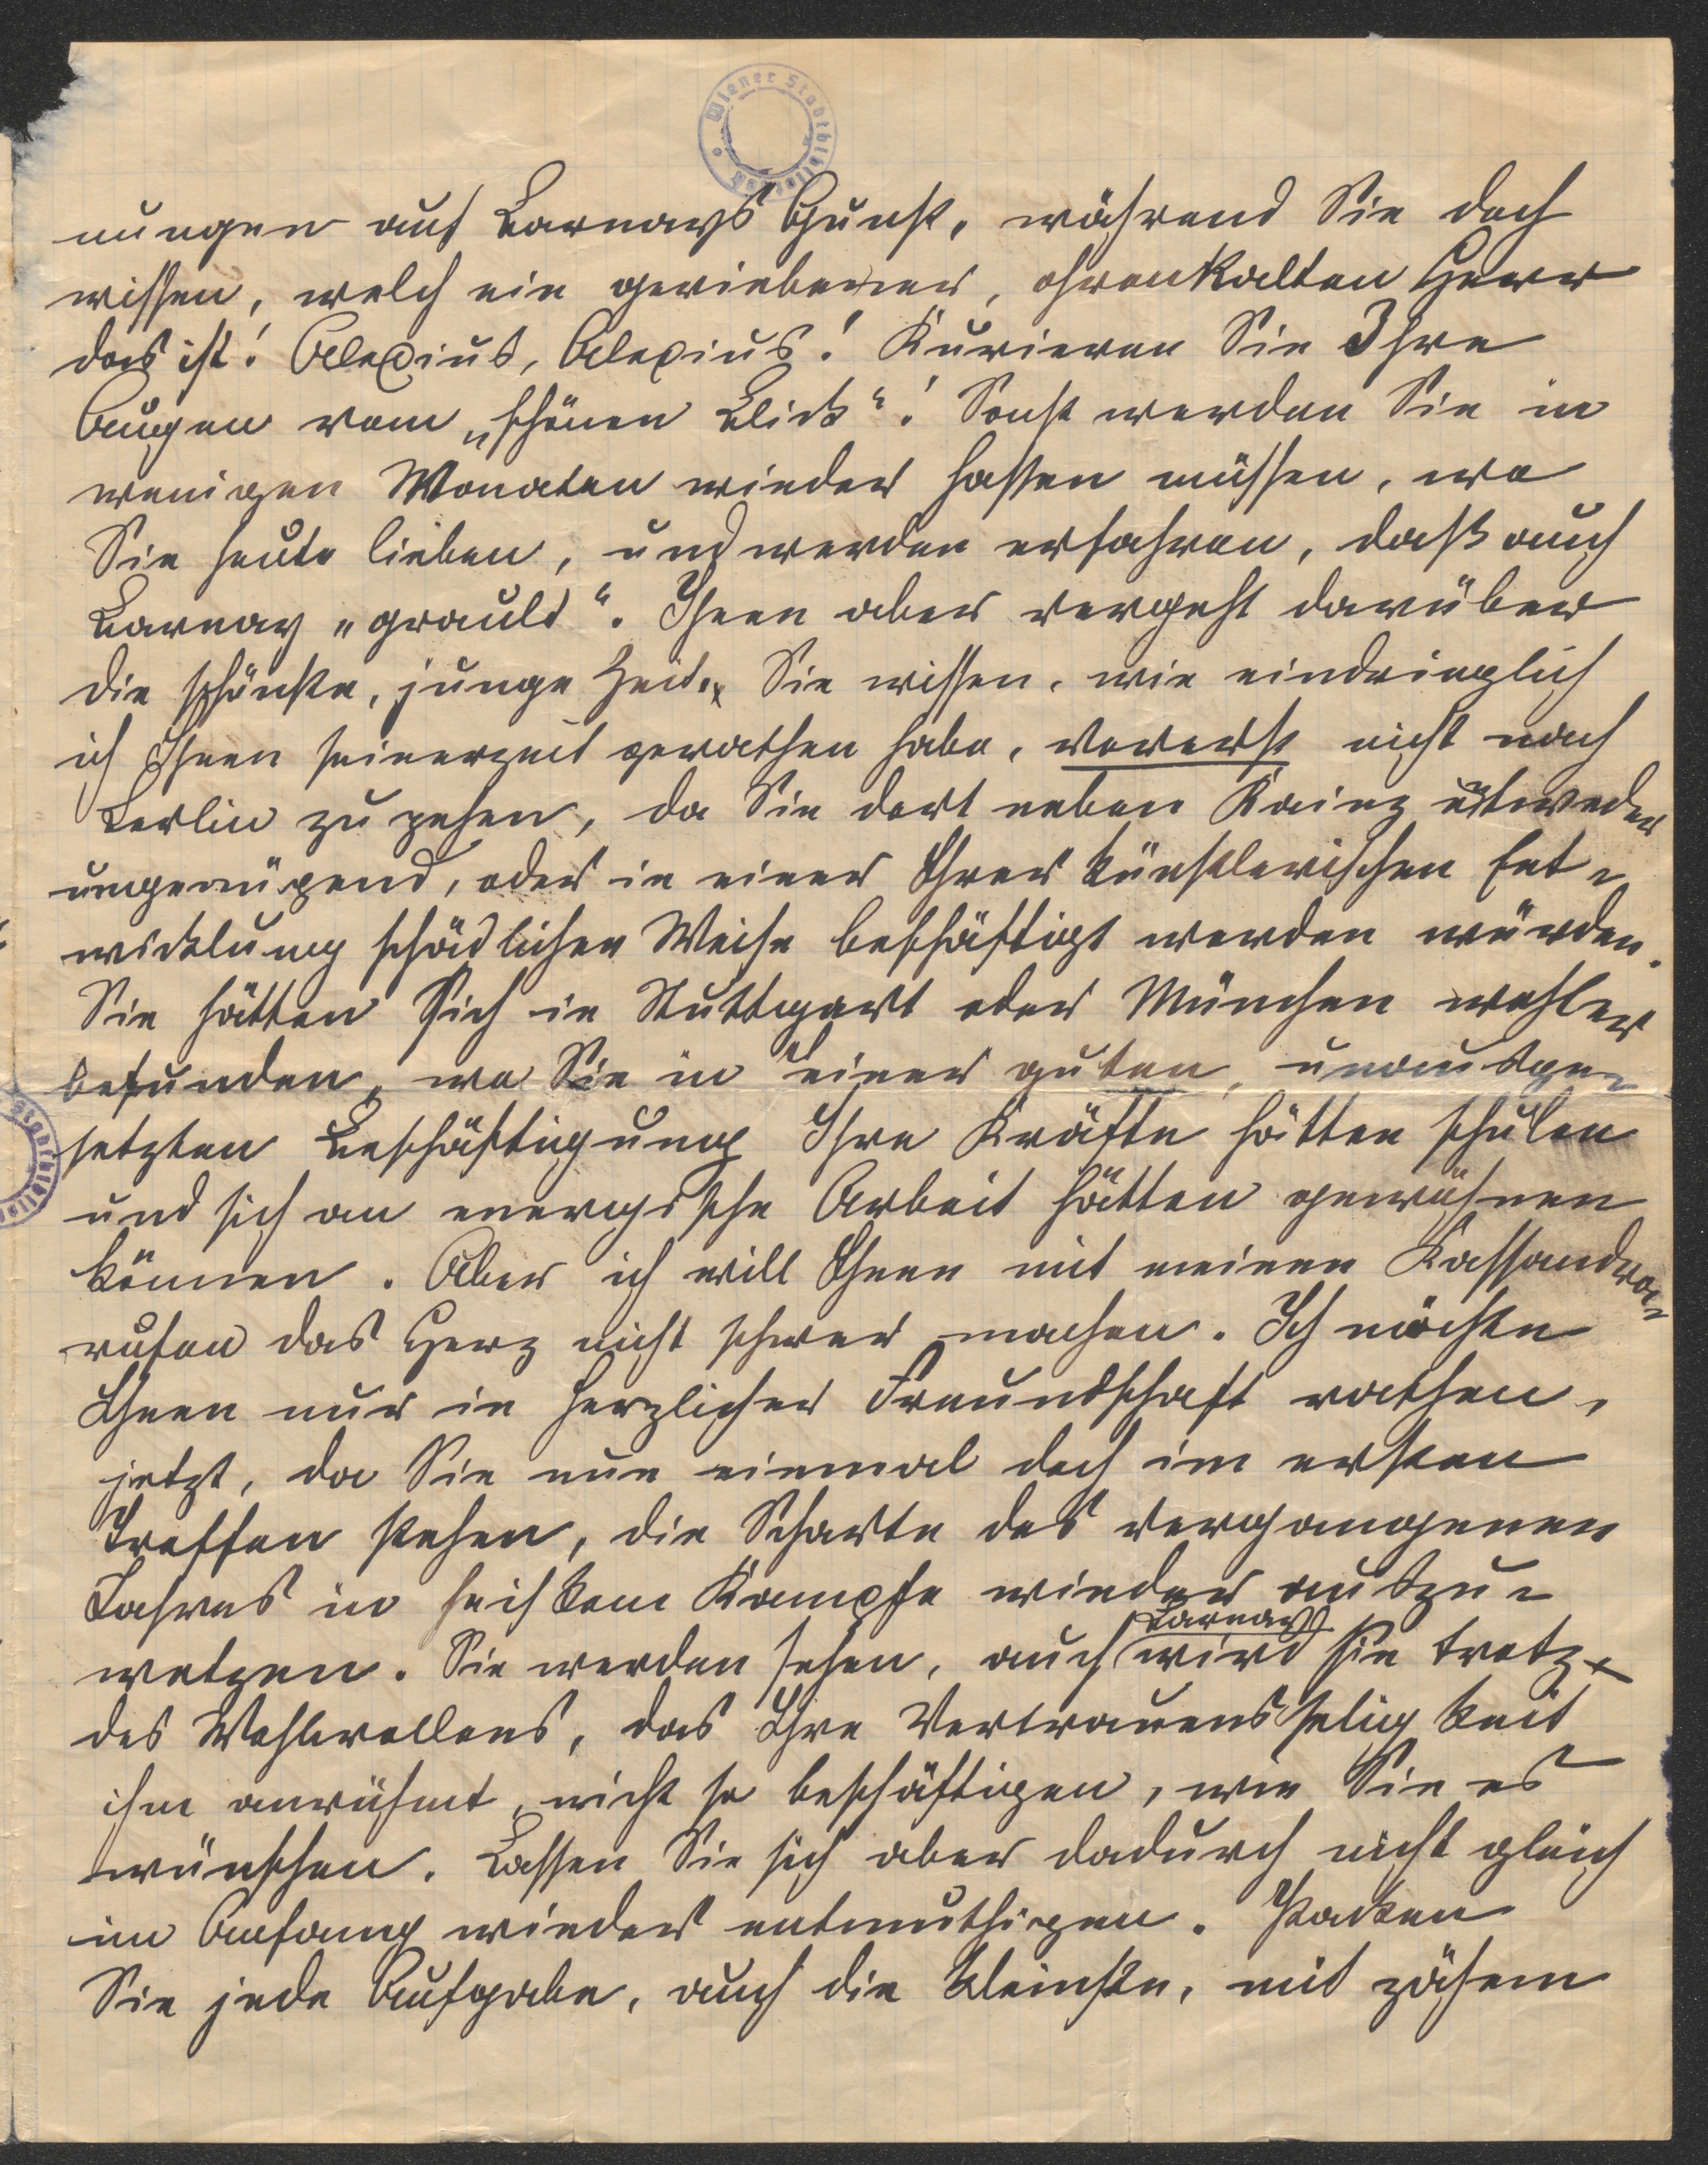 Wiener Stadtbibliothek
nungen auf Barnays Gunst, während Sie doch
wissen, welch ein geriebener, Herr
das ist! Alexius, Alexius! Kurieren Sie Ihre
Augen vom „schönen Blick“! Sonst werden Sie in
wenigen Monaten wieder hassen müssen, wo
Sie heute lieben, und werden erfahren, dass auch
Barnay „grault“. Ihnen aber vergeht darüber
die schönste, junge Zeit. Sie wissen, wie eindringlich
ich Ihnen seinerzeit gerathen habe, vorerst nicht nach
Berlin zu gehen, da Sie dort neben Kainz entweder
ungenügend, oder in einer Ihrer künstlerischen Ent-
wicklung schädlichen Weise beschäftigt werden würden.
Sie hätten Sich in Stuttgart oder München wohler
befunden, wo Sie in einer guten, unausge-
setzten Beschäftigung Ihre Kräfte hätten schulen
und sich an energische Arbeit hätten gewöhnen
können. Aber ich will Ihnen mit meinen Kassandra-
rufen das Herz nicht schwer machen. Ich möchte
Ihnen nur in herzlicher Freundschaft rathen,
jetzt, da Sie nun einmal doch im ersten
Treffen stehen, die Scharte des vergangenen
Jahres in heißem Kampfe wieder auszu-
Barnay
wetzen. Sie werden sehen, auch wird Sie trotz
des Wohlwollens, das Ihre Vertrauensseligkeit
ihm anrühmt, nicht so beschäftigen, wie Sie es
wünschen. Lassen Sie sich aber dadurch nicht gleich
im Anfang wieder entmuthigen. Packen
Sie jede Aufgabe, auch die kleinste, mit zähem